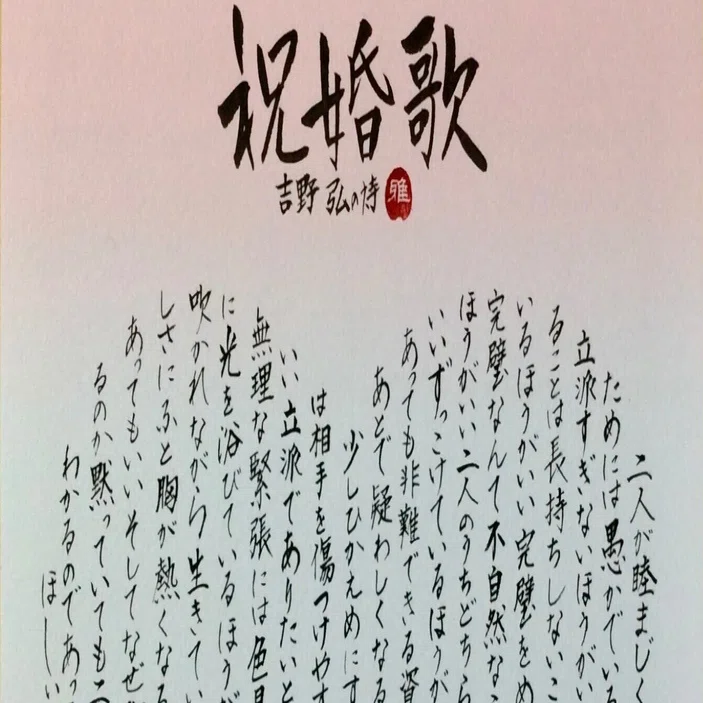 祝婚歌
吉野 弘の詩
雅
二人が睦まじく
ためには愚かでいる
立派すぎないほうがい
ることは長持ちしないこ
いるほうがいい 完璧をめ
完璧なんて不自然なこ
ほうがいい 二人のうちどちら
いい ずっこけているほうが
あっても非難できる資
あとで疑わしくなる
少しひかえめにす
は相手を傷つけやす
いい 立派でありたいと
無理な緊張には色目
に光を浴びているほうが
吹かれながら 生きてい
しさに ふと胸が熱くなる
あってもいい そしてなぜ
るのか 黙っていても 二
わかるのであっ
ほしい